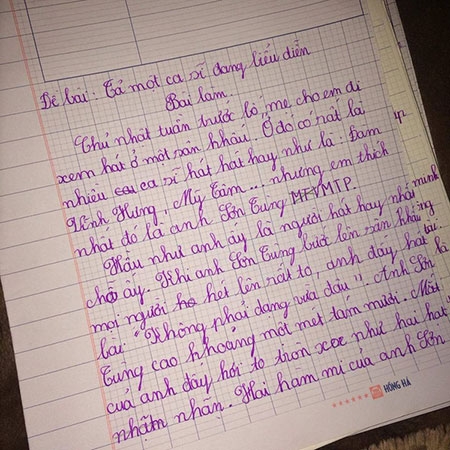 Đề bài: Tả một ca sĩ đang biểu diễn
Bài làm.
Chủ nhật tuần trước bố, mẹ cho em đi
xem hát ở một sân khấu. Ở đó có rất lại
nhiều ca sĩ hát hat hay như là: Đàm
Vĩnh Hưng, Mỹ Tâm... nhưng em thích
nhất đó là anh Sơn Tùng MTP.
Hầu như anh ấy là người hát hay nhất
chỗ ấy. Khi anh Sơn Tùng bước lên sân khấu
mọi người hò hét lên rất to, anh đấy hát
bài "Không phải dạng vừa đâu". Anh Sơn
Tùng cao khoảng một mét tám mươi. Mắt
của anh đấy hơi to tròn xoe như hai hạt
nhãn. Hai hàm mi của anh Sơn
HỒNG HÀ